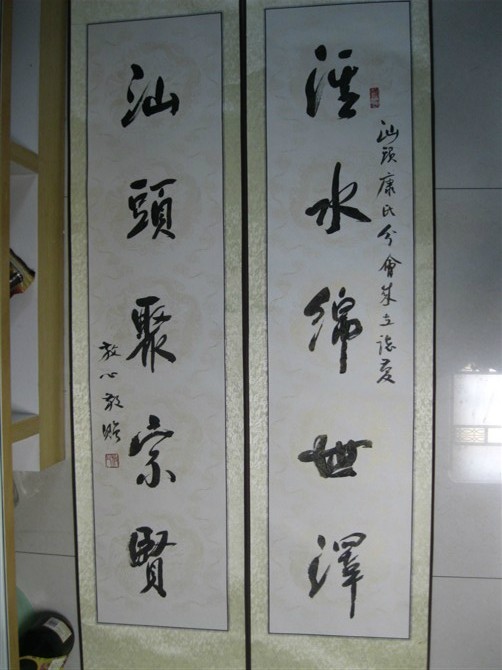 水綿世澤
汕頭康氏分會成立誌慶
汕頭聚宗賢
心敬贈